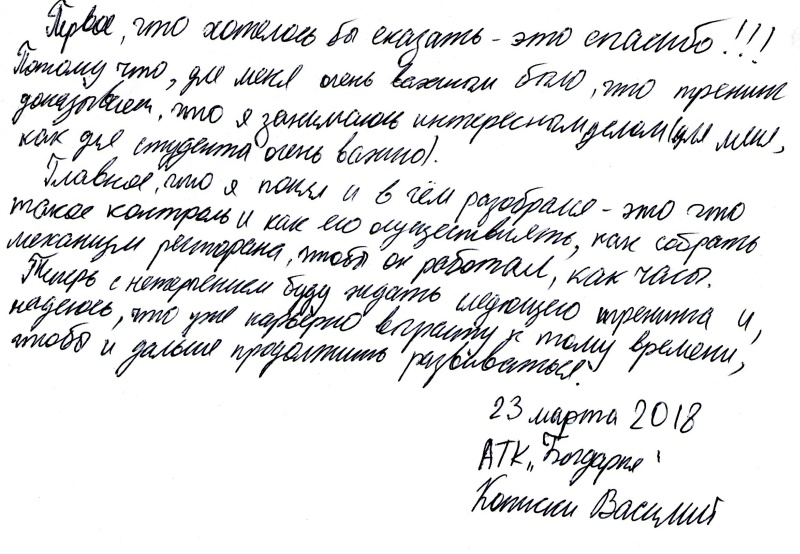 Первое, что хотелось бы сказать - это спасибо!!!
Потому что, для меня очень важном было, что тренинг
доказывает, что я занимаюсь интересным делом (для меня,
как для студента очень важно).
Главное, что я понял и в чём разобрался - это что
такое контроль и как его осуществлять, как собрать
механизм ресторана, чтобы он работал, как часы.
Теперь с нетерпением буду ждать следующего тренинга и,
надеюсь, что уже карьерно вырасту к тому времени,
чтобы и дальше продолжить развиваться.
23 марта 2018
АТК
Василий